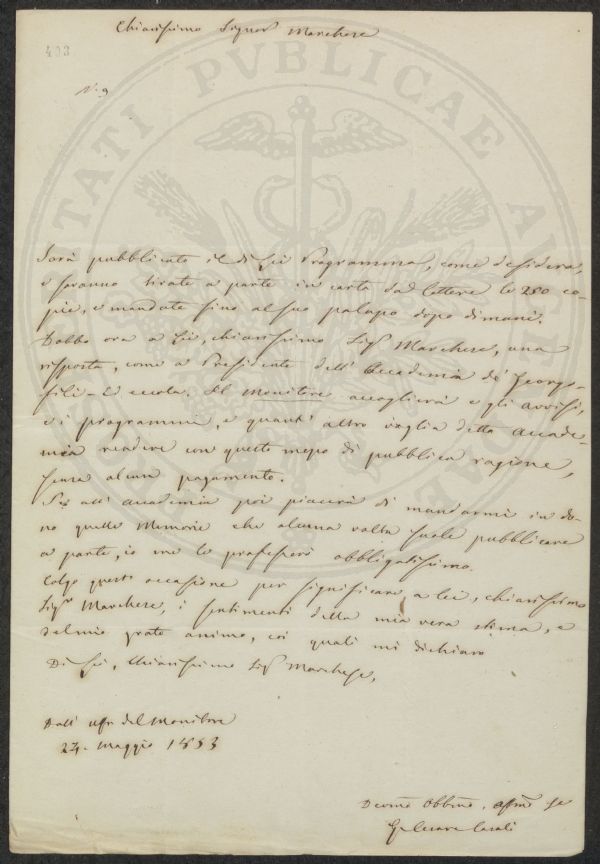 Chiarissimo Signor Marchese
403
N. 9
PUBLICAE
Sarà pubblicato il di Lei Programma, come desidera,
e saranno tirate a parte in carta da lettere le 250 co-
pie, e mandate fino al suo palazzo dopo dimani.
Debbo ora a Lei, chiarissimo Sigr Marchese, una
risposta, come a Presidente dell' Accademia de' Georgo-
fili - Ed eccola. Il Monitore accoglierà e gli avvisi,
e i programmi, e quant' altro voglia detta Accade-
mia rendere con questo mezzo di pubblica ragione,
senza alcun pagamento.
Se all' Accademia poi piacerà di mandarmi in do-
no quelle Memorie che alcuna volta suole pubblicare
a parte, io me le professerò obbligatissimo.
Colgo questa occasione per significare a Lei, chiarissimo
Sigr Marchese, i sentimenti della mia vera stima, e
del mio grato animo, coi quali mi dichiaro
Di Lei, Chiarissimo Sigr Marchese,
Dall' Uffo del Monitore
27. Maggio 1853
Devmo Obbmo. affmo
Cesare Casali